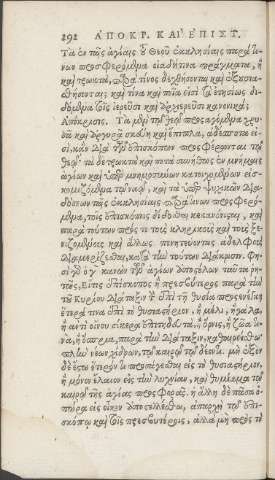 292 ΑΠΟΚΡ. ΚΑΙ ΕΠΙΣΤ.
Τὰ ἐν τῆς ἁγίαις τοῦ Θεοῦ ἐκκλησίαις παρά
νων προσφερόμενα εἰσόδια πράγματα, ἢ
καὶ τρωκτὰ, παρὰ τίνος δεχθήσονται καὶ
θήσονται; καὶ τίνα καὶ ποῖα εἰσὶ τὰ ἐτησίως δι-
δόμενα τοῖς ἱερεῦσι καὶ ἀρχιερεῦσι κανονικά;
Ἀπόκρισις. Τὰ μὲν τῷ θεῷ προσαγόμενα χρυ-
σᾶ καὶ ἀργυρᾶ σκεύη καὶ ἔπιπλα,
εἰσὶ, κἂν διὰ τῶν ἐπισκόπων προσφέρονται τῷ
θεῷ· τὰ δὲ τρωκτὰ καὶ ποτὰ συνήθως ἐν μνήμαις
ἁγίων καὶ ὑπὲρ μνημοσύνων κατοιχομένων εἰσ-
κομιζόμενα τῷ ναῷ, καὶ τὰ ὑπὲρ ψυχικῶν δια-
δόσεων τῆς ἐκκλησίαις παρὰ τίνων προσφερό-
μενα, τοῖς ἐπισκόποις δίδοται κανόνισται, καὶ
παρὰ τούτων πρὸς τε τοὺς κληρικοὺς καὶ τοὺς ξε-
νιζομένους καὶ ἄλλως πενητεύοντας ἀδελφοὺς
διαμερίζεσθαι, κατὰ τὴν τούτων διάκρισιν. Φη-
σὶ γὸ ὁ γ κανὼν τῶν ἁγίων ἀποστόλων ταῦτα ῥη-
τῶς, Εἴτις ἐπίσκοπος ἢ πρεσβύτερος παρὰ τὴν
τοῦ Κυρίου διάταξιν τὴν ἐπὶ τῇ θυσίᾳ προσενέγκῃ
ἕτερά τινα ἐπὶ τὸ θυσιαστήριον, ἢ μέλι, ἢ γάλα,
ἢ ἀντὶ οἴνου σίκερα ἐπιτηδευτὰ, ἢ ὄρνις, ἢ ζῶά τι-
να, ἢ ὄσπρια, παρὰ τὴν διάταξιν, καθαιρείσθω·
πλὴν νέων χίδρων, τῷ καιρῷ τῷ δέοντι. μὴ ἐξὸν
δὲ ἔστω ἕτερόν τι προσάγεσθαι εἰς τὸ θυσιαστήριον,
ἢ μόνον ἔλαιον εἰς τὴν λυχνίαν, καὶ θυμίαμα τῷ
καιρῷ τῆς ἁγίας προσφορᾶς. ἡ ἄλλη δὲ πᾶσα ὀ-
πώρα εἰς οἶκον ἀποστελλέσθω, ἀπαρχὴ τῷ ἐπι-
σκόπῳ καὶ τοῖς πρεσβυτέροις, ἀλλὰ μὴ πρὸς τὸ